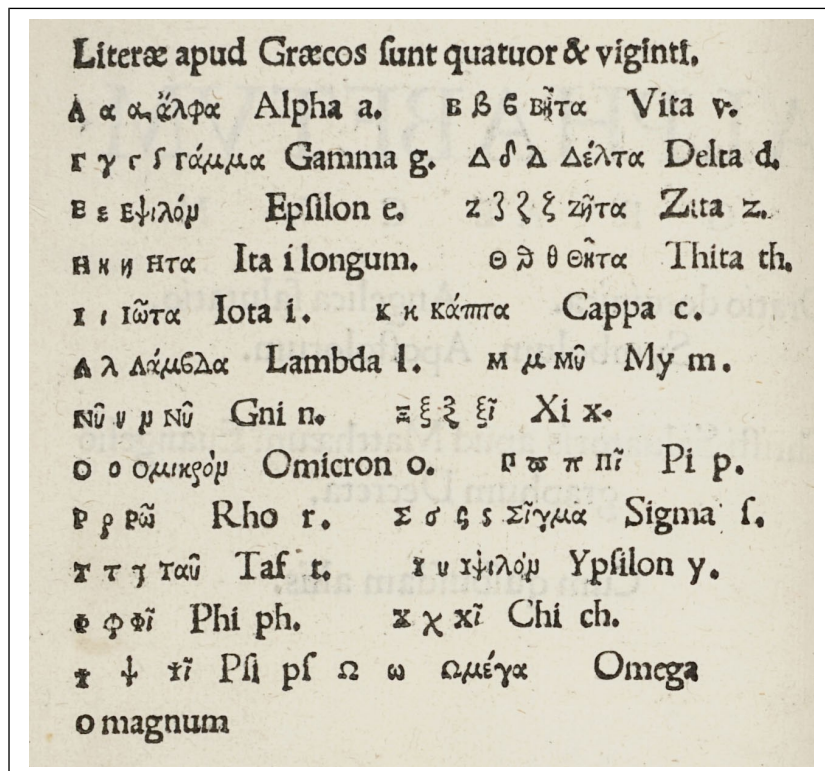 Literæ apud Græcos ſunt quatuor & viginti.
Α α ἄλφα Alpha a. Β β ϐ Βῆτα Vita v.
Γ γ Γάμμα Gamma g. Δ δ Δέλτα Delta d.
Ε ε Εψιλόν Epſilon e. Ζ ζ Ζῆτα Zita z.
Η η Ητα Ita i longum. Θ ϑ θ Θῆτα Thita th.
Ι ι Ιῶτα Iota i. Κ κ Κάππα Cappa c.
Λ λ Λάμϐδα Lambda l. Μ μ Μῦ My m.
Νῦ ν Νῦ Gni n. Ξ ξ ξῖ Xi x.
Ο ο Ομικρόν Omicron o. Π ϖ π Πῖ Pi p.
Ρ ρ Ρῶ Rho r. Σ σ ς Σῖγμα Sigma ſ.
Τ τ Ταῦ Taf t. Υ υ Υψιλόν Ypſilon y.
Φ φ Φῖ Phi ph. Χ χ Χῖ Chi ch.
Ψ ψ Ψῖ Pſi pſ Ω ω Ωμέγα Omega
o magnum